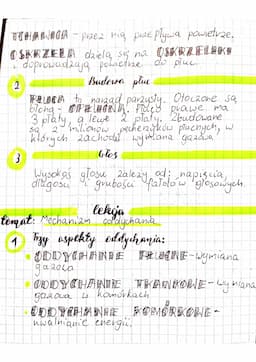 TCHAWICA - przez nią przepływa powietrze.
OSKRZELA dzielą się na OSKRZELIKI
i doprowadzają powietrze do płuc.
2 Budowa płuc
PŁUCA to narząd parzysty. Otoczone są
błoną - OPŁUCNĄ. Płuco prawe ma
3 płaty, a lewe 2 płaty. Zbudowane
są z milionów pęcherzyków płucnych, w
których zachodzi wymiana gazowa.
3 Głos
Wysokość głosu zależy od: napięcia,
długości i grubości fałdów głosowych.
Lekcja
temat: Mechanizm oddychania.
1 Trzy aspekty oddychania:
• ODDYCHANIE PŁUCNE - wymiana
gazowa
• ODDYCHANIE TKANKOWE - wymiana
gazowa w komórkach
• ODDYCHANIE KOMÓRKOWE -
uwalnianie energii.